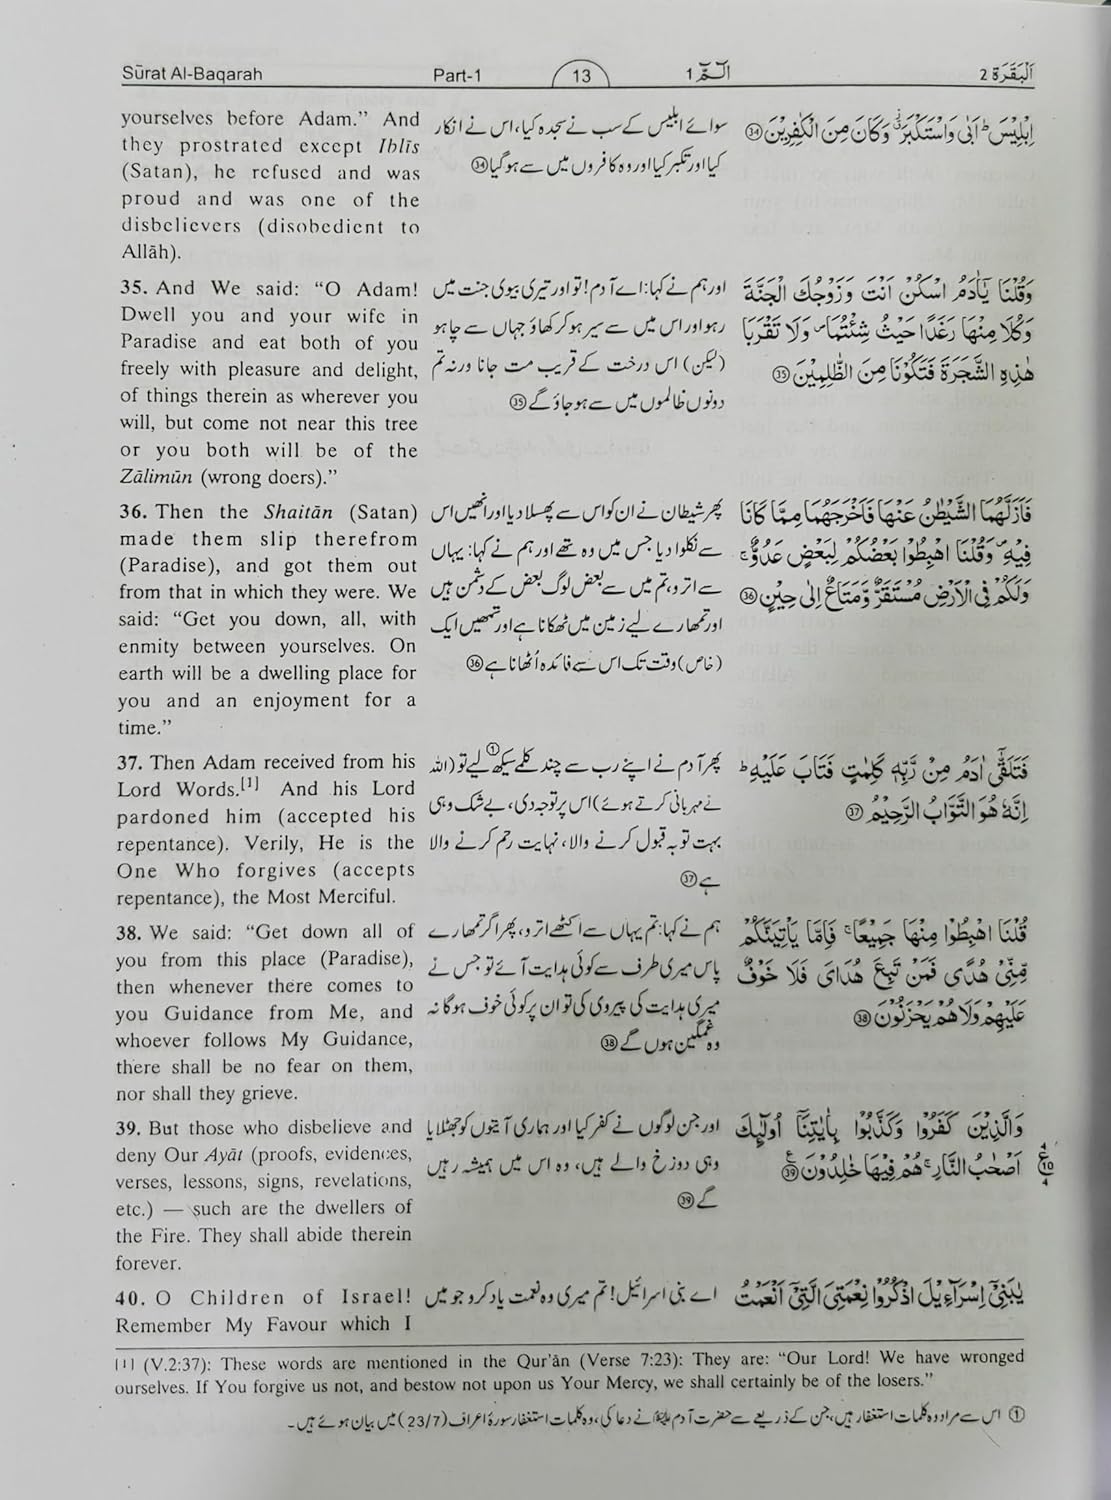 Sūrat Al-Baqarah Part-1 13 الٓمّٓ 1 اَلْبَقَرَة 2
yourselves before Adam.” And
they prostrated except Iblīs
(Satan), he refused and was
proud and was one of the
disbelievers (disobedient to
Allāh).
سوائے ابلیس کے سب نے سجدہ کیا، اس نے انکار
کیا اور تکبر کیا اور وہ کافروں میں سے ہو گیا ㉞
اِبْلِیْسَ ؕ اَبٰی وَاسْتَکْبَرَ ٭ۗ وَکَانَ مِنَ الْکٰفِرِیْنَ ㉞
35. And We said: “O Adam!
Dwell you and your wife in
Paradise and eat both of you
freely with pleasure and delight,
of things therein as wherever you
will, but come not near this tree
or you both will be of the
Zālimūn (wrong doers).”
اور ہم نے کہا: اے آدم! تو اور تیری بیوی جنت میں
رہو اور اس میں سے سیر ہو کر کھاؤ جہاں سے چاہو
(لیکن) اس درخت کے قریب مت جانا ورنہ تم
دونوں ظالموں میں سے ہو جاؤ گے ㉟
وَقُلْنَا یٰۤاٰدَمُ اسْکُنْ اَنْتَ وَزَوْجُكَ الْجَنَّةَ
وَکُلَا مِنْهَا رَغَدًا حَیْثُ شِئْتُمَا ۪ وَلَا تَقْرَبَا
هٰذِهِ الشَّجَرَةَ فَتَکُوْنَا مِنَ الظّٰلِمِیْنَ ㉟
36. Then the Shaitān (Satan)
made them slip therefrom
(Paradise), and got them out
from that in which they were. We
said: “Get you down, all, with
enmity between yourselves. On
earth will be a dwelling place for
you and an enjoyment for a
time.”
پھر شیطان نے ان کو اس سے پھسلا دیا اور انھیں اس
سے نکلوا دیا جس میں وہ تھے اور ہم نے کہا: یہاں
سے اترو، تم میں سے بعض لوگ بعض کے دشمن ہیں
اور تمھارے لیے زمین میں ٹھکانا ہے اور تمھیں ایک
(خاص) وقت تک اس سے فائدہ اُٹھانا ہے ㊱
فَاَزَلَّهُمَا الشَّیْطٰنُ عَنْهَا فَاَخْرَجَهُمَا مِمَّا کَانَا
فِیْهِ ۪ وَقُلْنَا اهْبِطُوْا بَعْضُکُمْ لِبَعْضٍ عَدُوٌّ ۚ
وَلَکُمْ فِی الْاَرْضِ مُسْتَقَرٌّ وَّمَتَاعٌ اِلٰی حِیْنٍ ㊱
37. Then Adam received from his
Lord Words.[1] And his Lord
pardoned him (accepted his
repentance). Verily, He is the
One Who forgives (accepts
repentance), the Most Merciful.
پھر آدم نے اپنے رب سے چند کلمے سیکھ ① لیے تو (اللہ
نے مہربانی کرتے ہوئے) اس پر توجہ دی، بے شک وہی
بہت توبہ قبول کرنے والا، نہایت رحم کرنے والا
ہے ㊲
فَتَلَقّٰۤی اٰدَمُ مِنْ رَّبِّهٖ کَلِمٰتٍ فَتَابَ عَلَیْهِ ؕ
اِنَّهٗ هُوَ التَّوَّابُ الرَّحِیْمُ ㊲
38. We said: “Get down all of
you from this place (Paradise),
then whenever there comes to
you Guidance from Me, and
whoever follows My Guidance,
there shall be no fear on them,
nor shall they grieve.
ہم نے کہا: تم یہاں سے اکٹھے اترو، پھر اگر تمھارے
پاس میری طرف سے کوئی ہدایت آئے تو جس نے
میری ہدایت کی پیروی کی تو ان پر کوئی خوف ہوگا نہ
وہ غمگین ہوں گے ㊳
قُلْنَا اهْبِطُوْا مِنْهَا جَمِیْعًا ۚ فَاِمَّا یَاْتِیَنَّکُمْ
مِّنِّیْ هُدًی فَمَنْ تَبِعَ هُدَایَ فَلَا خَوْفٌ
عَلَیْهِمْ وَلَا هُمْ یَحْزَنُوْنَ ㊳
39. But those who disbelieve and
deny Our Ayāt (proofs, evidences,
verses, lessons, signs, revelations,
etc.) — such are the dwellers of
the Fire. They shall abide therein
forever.
اور جن لوگوں نے کفر کیا اور ہماری آیتوں کو جھٹلایا
وہی دوزخ والے ہیں، وہ اس میں ہمیشہ رہیں
گے ㊴
وَالَّذِیْنَ کَفَرُوْا وَکَذَّبُوْا بِاٰیٰتِنَاۤ اُولٰٓئِكَ
اَصْحٰبُ النَّارِ ۚ هُمْ فِیْهَا خٰلِدُوْنَ ㊴ ۧ
4 ع 10 4
40. O Children of Israel!
Remember My Favour which I
اے بنی اسرائیل! تم میری وہ نعمت یاد کرو جو میں
یٰبَنِیْۤ اِسْرَآءِیْلَ اذْکُرُوْا نِعْمَتِیَ الَّتِیْۤ اَنْعَمْتُ
[1] (V.2:37): These words are mentioned in the Qur’ān (Verse 7:23): They are: “Our Lord! We have wronged
ourselves. If You forgive us not, and bestow not upon us Your Mercy, we shall certainly be of the losers.”
① اس سے مراد وہ کلمات استغفار ہیں، جن کے ذریعے سے حضرت آدم علیہ السلام نے دعا کی، وہ کلمات استغفار سورۂ اعراف (23/7) میں بیان ہوئے ہیں۔